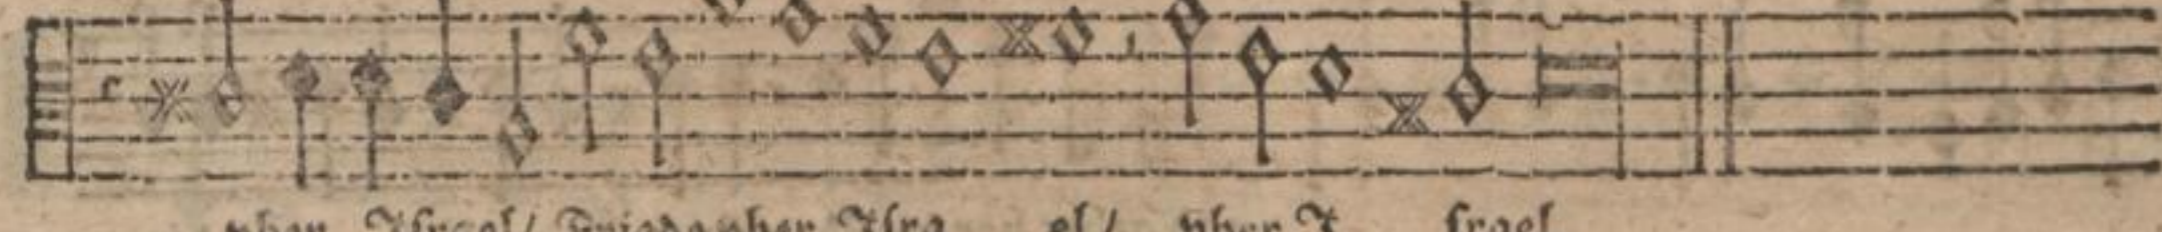 vber Israel/ Friede vber Isra el/ vber I srael